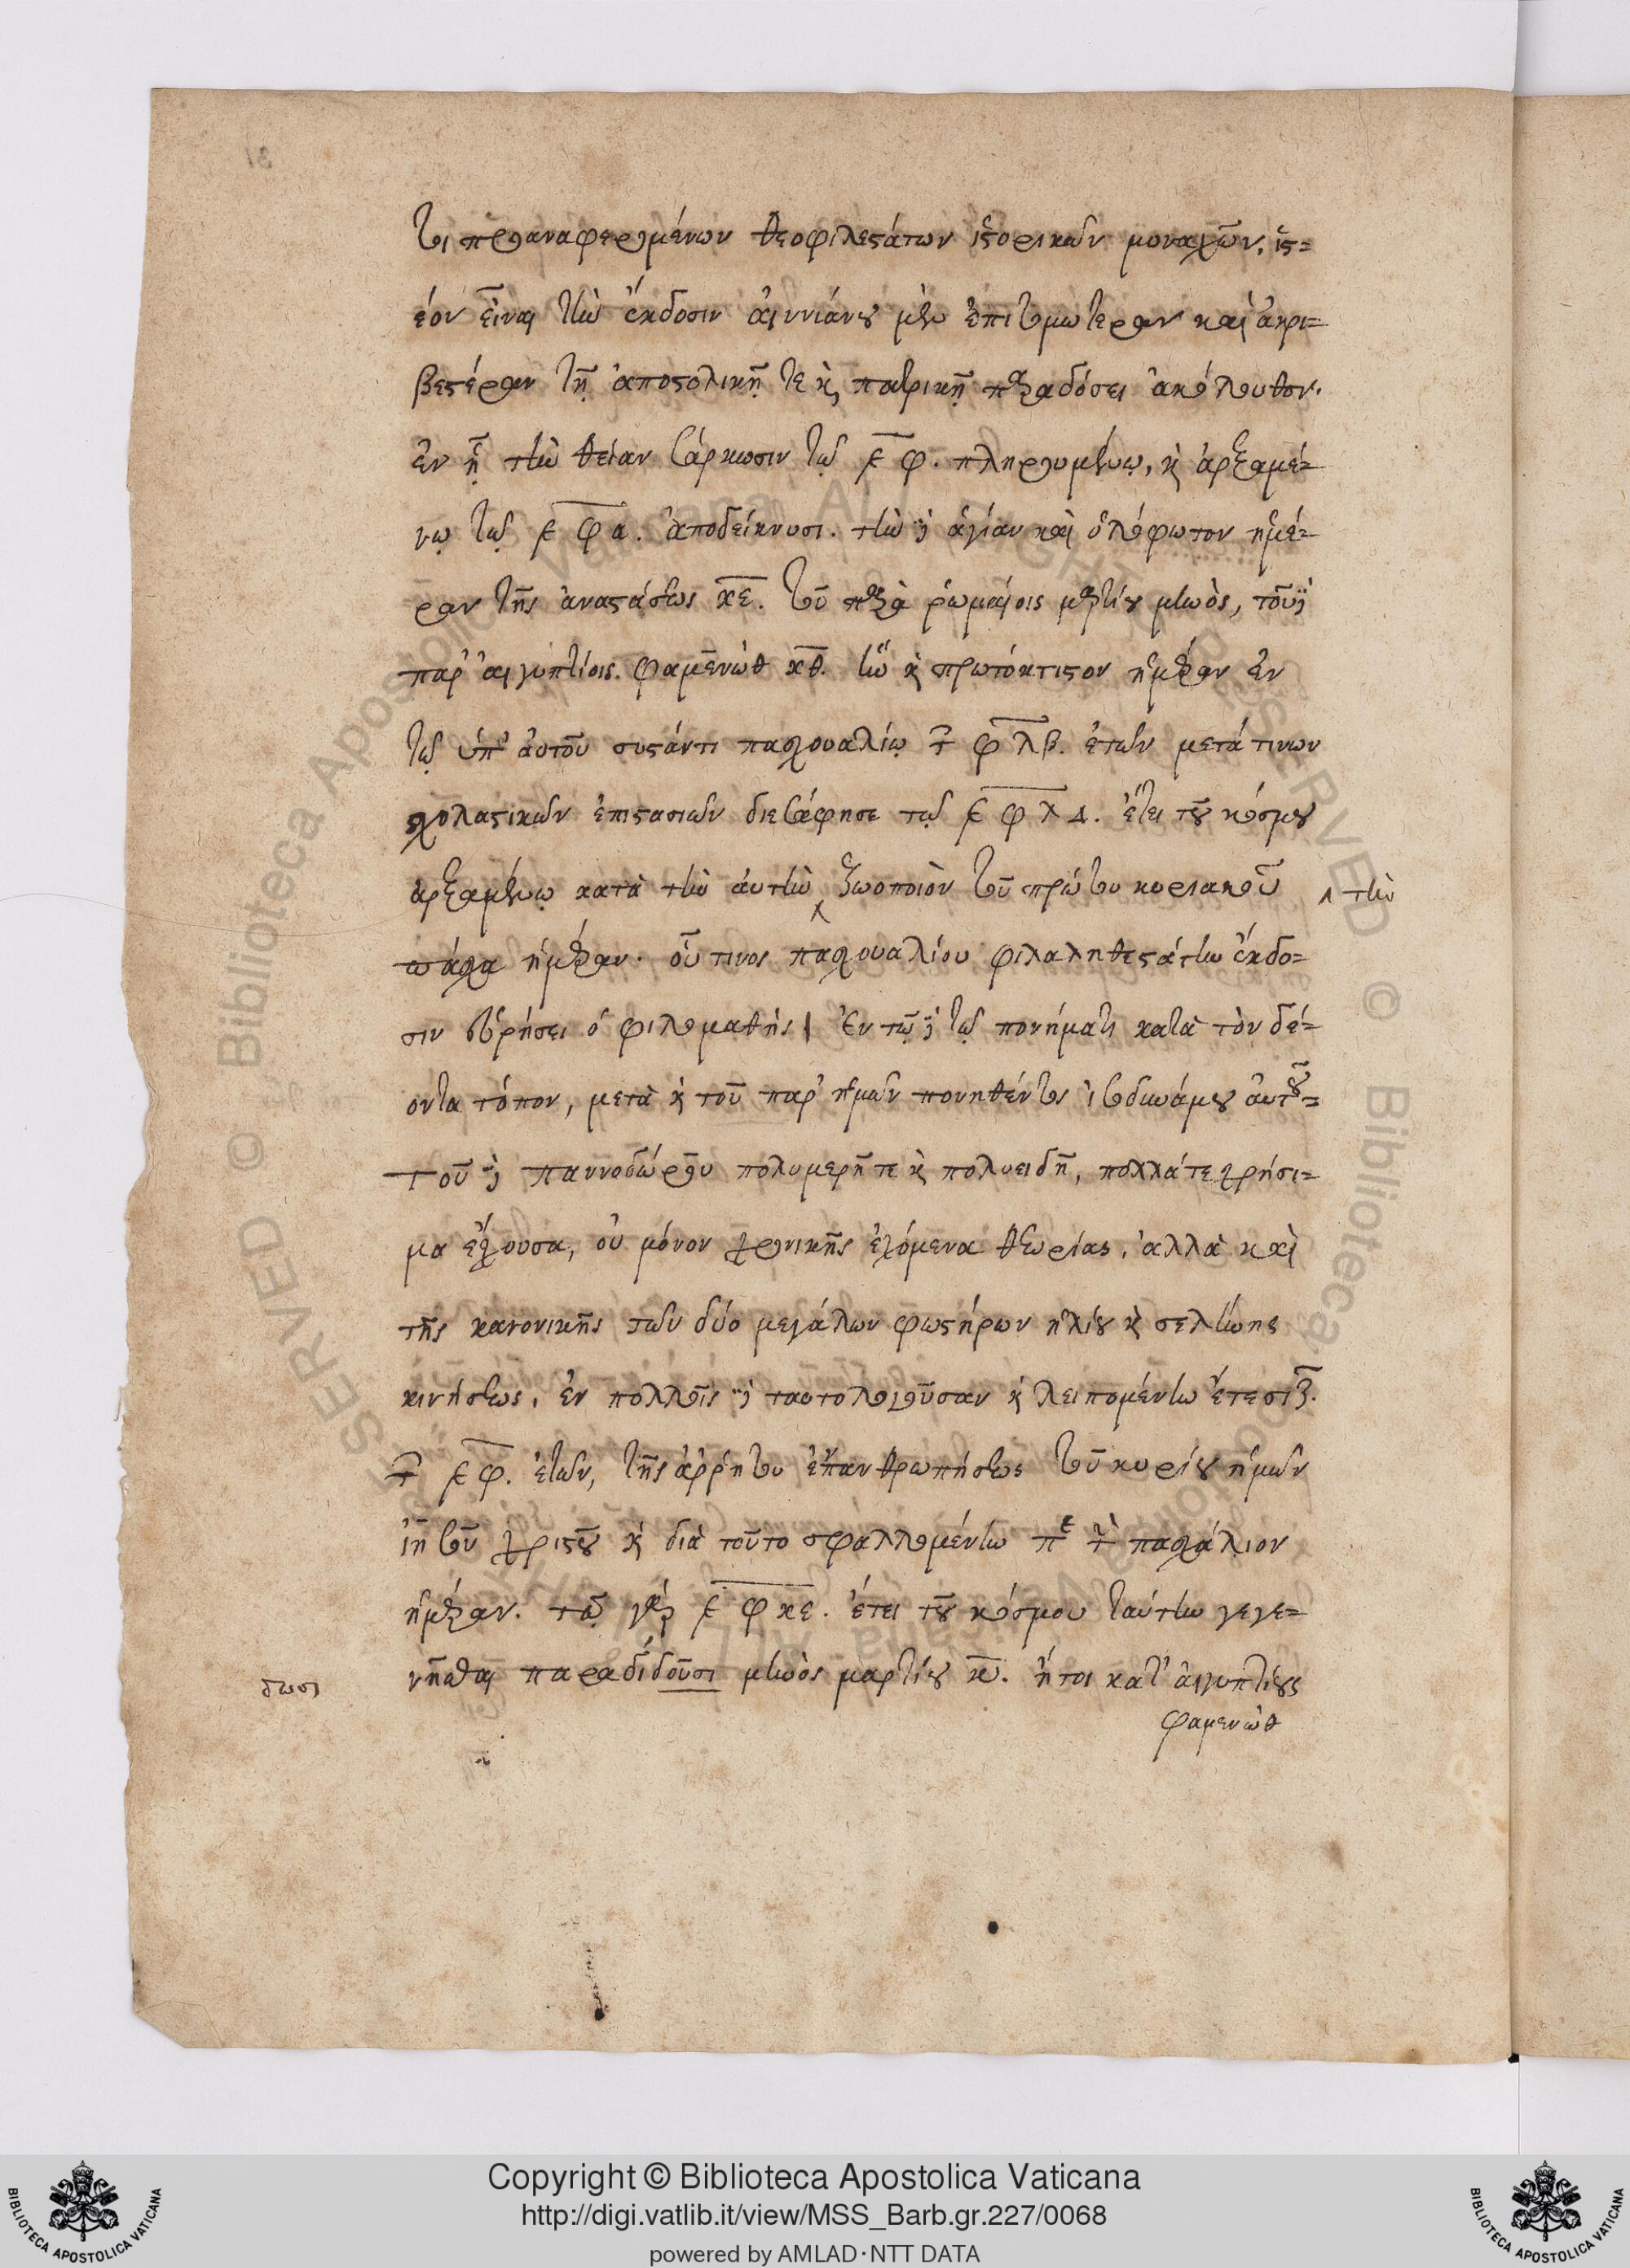 τι προαναφερομένων θεοφιλεστάτων ἱστορικῶν μοναχῶν, ἰστ=
έον εἶναι τὴν ἔκδοσιν ἀϊννιάνου μὲν ἐπιτομωτέραν καὶ ἀκρι=
βεστέραν τῇ ἀποστολικῇ τε κ̀ πατρικῇ παραδόσει ἀκόλουθον.
ἐν ᾗ τὴν θείαν σάρκωσιν τῷ ͵ε φ. πληρουμένῳ, κ̀ ἀρξαμέ=
νῳ τῷ ͵ε φ α. ἀποδείκνυσι. τὴν δ̀ ἁγίαν καὶ ὁλόφωτον ἡμέ=
ραν τῆς ἀναστάσεως κε. τοῦ παρὰ ῥωμαίοις μαρτίου μηνὸς, τοῦ δ̀
παρ' αἰγυπτίοις. φαμενὼθ κθ. ἣν κ̀ πρωτόκτιστον ἡμέραν ἐν
τῷ ὑπ' αὐτοῦ συστάντι πασχουαλίῳ τῶν φλβ. ἐτῶν μετά τινων
σχολαστικῶν ἐπιστασιῶν διεσάφησε τῷ ͵ε φ λ δ. ἔτει τοῦ κόσμου
ἀρξαμένῳ κατὰ τὴν αὐτὴν ζωοποιὸν τοῦ πρώτου κυριακοῦ ⁁ τὴν
πάσχα ἡμέραν. οὗ τινος πασχουαλίου φιλαληθεστάτην ἔκδο=
σιν εὑρήσει ὁ φιλομαθὴς | Ἐν τῷ δ̀ τῷ πονήματι κατὰ τὸν δέ=
οντα τόπον, μετὰ κ̀ τοῦ παρ' ἡμῶν πονηθέντος ἰσοδυνάμου αὐτοῦ=
τοῦ δ̀ παννοδώρου πολυμερῆ τε κ̀ πολυειδῆ, πολλά τε χρήσι=
μα ἔχουσα, οὐ μόνον χρονικῆς ἐχόμενα θεωρίας, ἀλλὰ καὶ
τῆς κανονικῆς τῶν δύο μεγάλων φωστήρων ἡλίου κ̀ σελήνης
κινήσεως, ἐν πολλοῖς δ̀ ταυτολογοῦσαν κ̀ λειπομένην ἔτεσι ζ.
τῶν ͵ε φ. ἐτῶν, τῆς ἀῤῥήτου ἐπανθρωπήσεως τοῦ κυρίου ἡμῶν
ἰη τοῦ χριστοῦ κ̀ διὰ τοῦτο σφαλλομένην πε τὴν πασχάλιον
ἡμέραν. τῷ γὰρ ͵ε φ κε. ἔτει τοῦ κόσμου ταύτην γεγε=
δωσι νῆσθαι παραδίδουσι μηνὸς μαρτίου κ. ἤτοι κατ' αἰγυπτίους
φαμενὼθ
Copyright © Biblioteca Apostolica Vaticana
http://digi.vatlib.it/view/MSS_Barb.gr.227/0068
powered by AMLAD·NTT DATA
BIBLIOTECA APOSTOLICA VATICANA
BIBLIOTECA APOSTOLICA VATICANA